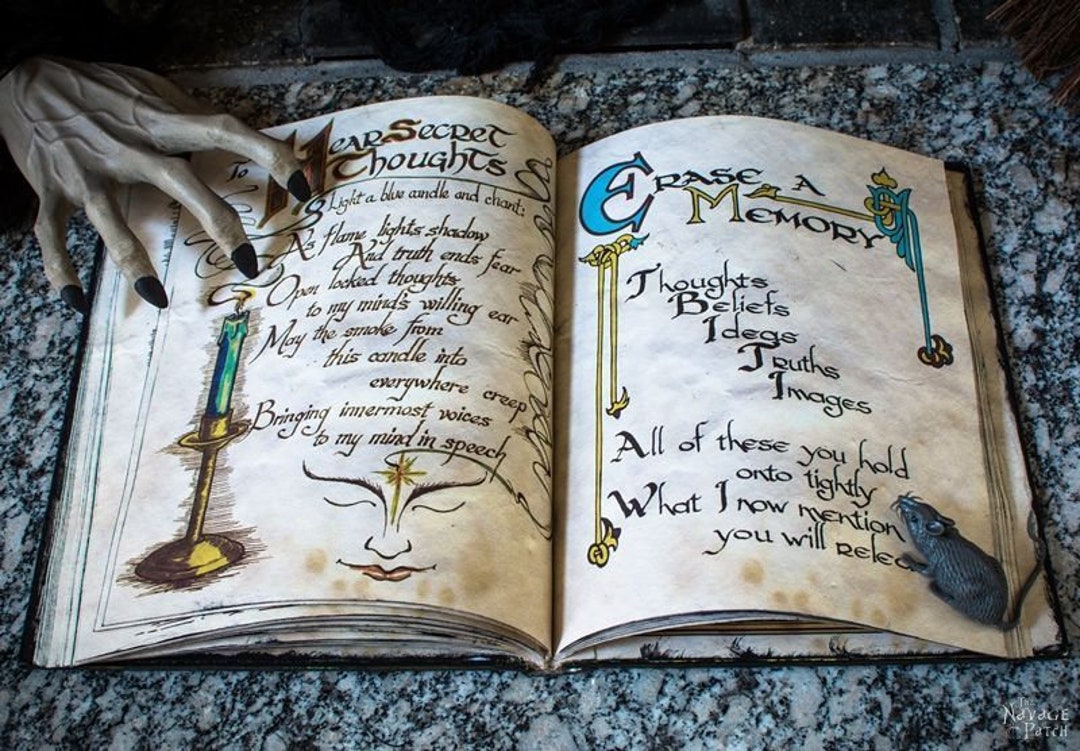 To Hear Secret
Thoughts
Light a blue candle and chant:
As flame lights shadow
And truth ends fear
Open locked thoughts
to my mind's willing ear
May the smoke from
this candle into
everywhere creep
Bringing innermost voices
to my mind in speech
Erase a
Memory
Thoughts
Beliefs
Ideas
Truths
Images
All of these you hold
onto tightly
What I now mention
you will relea
The
Navage
Patch